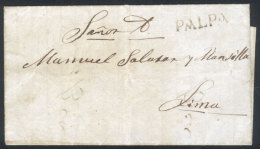 Señor D
PALPA
Manuel Salazar y Mansilla
Lima